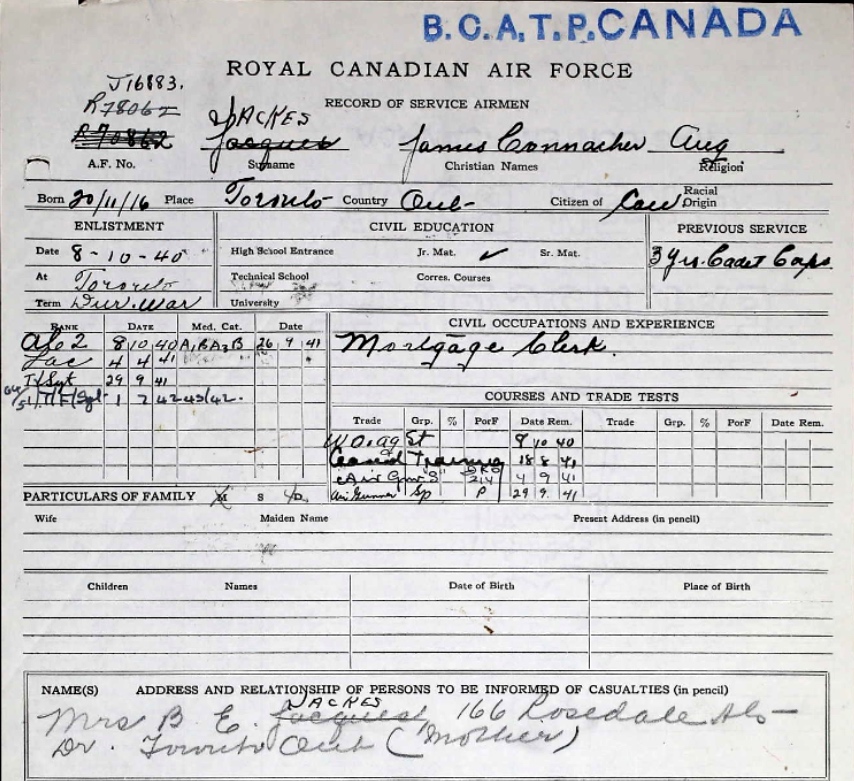 B.C.A.T.P. CANADA
ROYAL CANADIAN AIR FORCE
J16883.
RECORD OF SERVICE AIRMEN
R78062
R70862 JACKES Jacques James Connacher Ang
A.F. No. Surname Christian Names Religion
Born 20/11/16 Place Toronto Country Ont Citizen of Can Racial Origin
ENLISTMENT CIVIL EDUCATION PREVIOUS SERVICE
Date 8-10-40 High School Entrance Jr. Mat. ✓ Sr. Mat. 3 Yrs. Cadet Corps.
At Toronto Technical School Corres. Courses
Term Dur. War University
RANK DATE Med. Cat. Date CIVIL OCCUPATIONS AND EXPERIENCE
Ac 2 8 10 40 A1B A3B 26 9 41 Mortgage Clerk.
Lac 4 4 41
T/Sgt 29 9 41
1 7 42 COURSES AND TRADE TESTS
Trade Grp. % PorF Date Rem. Trade Grp. % PorF Date Rem.
W.O. ag St 9 10 40
Training 18 8 41
Air Gnr "S" DRO 214 4 9 41
Air Gunner Sp P 29 9. 41
PARTICULARS OF FAMILY M S D
Wife Maiden Name Present Address (in pencil)
Children Names Date of Birth Place of Birth
NAME(S) ADDRESS AND RELATIONSHIP OF PERSONS TO BE INFORMED OF CASUALTIES (in pencil)
Mrs B E. JACKES Jacques 166 Rosedale Hts
Dr. Toronto Ont (Mother)